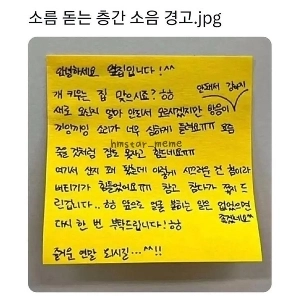 소름 돋는 층간 소음 경고.jpg
안녕하세요 옆집입니다!^^
개 키우는 집 맞으시죠?ㅎㅎ
새로 오신지 얼마 안돼서
소리가 너무 심하게 들려요ㅠㅠ 요즘
hmstar_meme
죽을 것처럼 잠도 못자고 힘드네요ㅠㅠ
여기서 산지 꽤 됐는데 이렇게 시끄러운 건 처음이라
버티기가 힘들었어요ㅠㅠ 참고 참다가 쪽지 드
립니다.. ㅎㅎ 앞으로 얼굴 붉히는 일은 없었으면
좋겠네요^^
다시 한 번 부탁드립니다!ㅎㅎ
즐거운 연말 되시길...^^!!